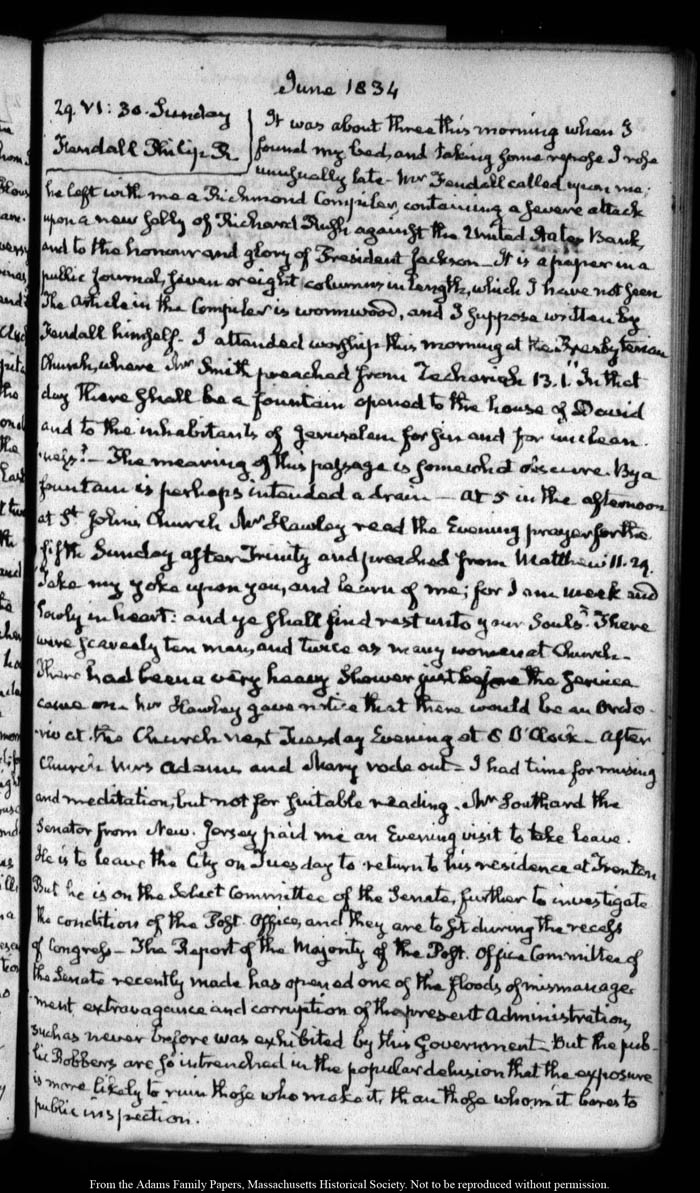 June 1834
29. VI: 30. Sunday
Fendall Philip R.
It was about three this morning when I
found my bed, and taking some repose I rose
unusually late - Mr Fendall called upon me;
he left with me a Richmond Compiler, containing a severe attack
upon a new folly of Richard Rush against the United States Bank,
and to the honour and glory of President Jackson - It is a paper in a
public journal, seven or eight columns in length, which I have not seen
The Article in the Compiler is wormwood, and I suppose written by
Fendall himself - I attended worship this morning at the Presbyterian
Church, where Mr Smith preached from Zechariah 13.1. "In that
day there shall be a fountain opened to the house of David
and to the inhabitants of Jerusalem for sin and for unclean-
ness." - The meaning of this passage is somewhat obscure. By a
fountain is perhaps intended a drain - At 5 in the afternoon
at St. John's Church Mr Hawley read the Evening prayer for the
fifth Sunday after Trinity and preached from Matthew 11.29.
"Take my yoke upon you, and learn of me; for I am meek and
lowly in heart: and ye shall find rest unto your Souls." There
were scarcely ten men, and twice as many women at Church -
There had been a very heavy shower just before the service
came on - Mr Hawley gave notice that there would be an Orato-
rio at the Church next Tuesday Evening at 8 O'Clock - After
Church Mrs Adams and Mary rode out - I had time for musing
and meditation, but not for suitable reading. Mr Southard the
Senator from New-Jersey paid me an Evening visit to take leave.
He is to leave the City on Tuesday to return to his residence at Trenton
But he is on the Select Committee of the Senate, further to investigate
the condition of the Post-Office, and they are to sit during the recess
of Congress - The Report of the Majority of the Post-Office Committee of
the Senate recently made has opened one of the floods of mismanage-
ment extravagance and corruption of the present Administration,
such as never before was exhibited by this Government - But the pub-
lic Robbers are so intrenched in the popular delusion that the exposure
is more likely to ruin those who make it, than those whom it bares to
public inspection.
From the Adams Family Papers, Massachusetts Historical Society. Not to be reproduced without permission.